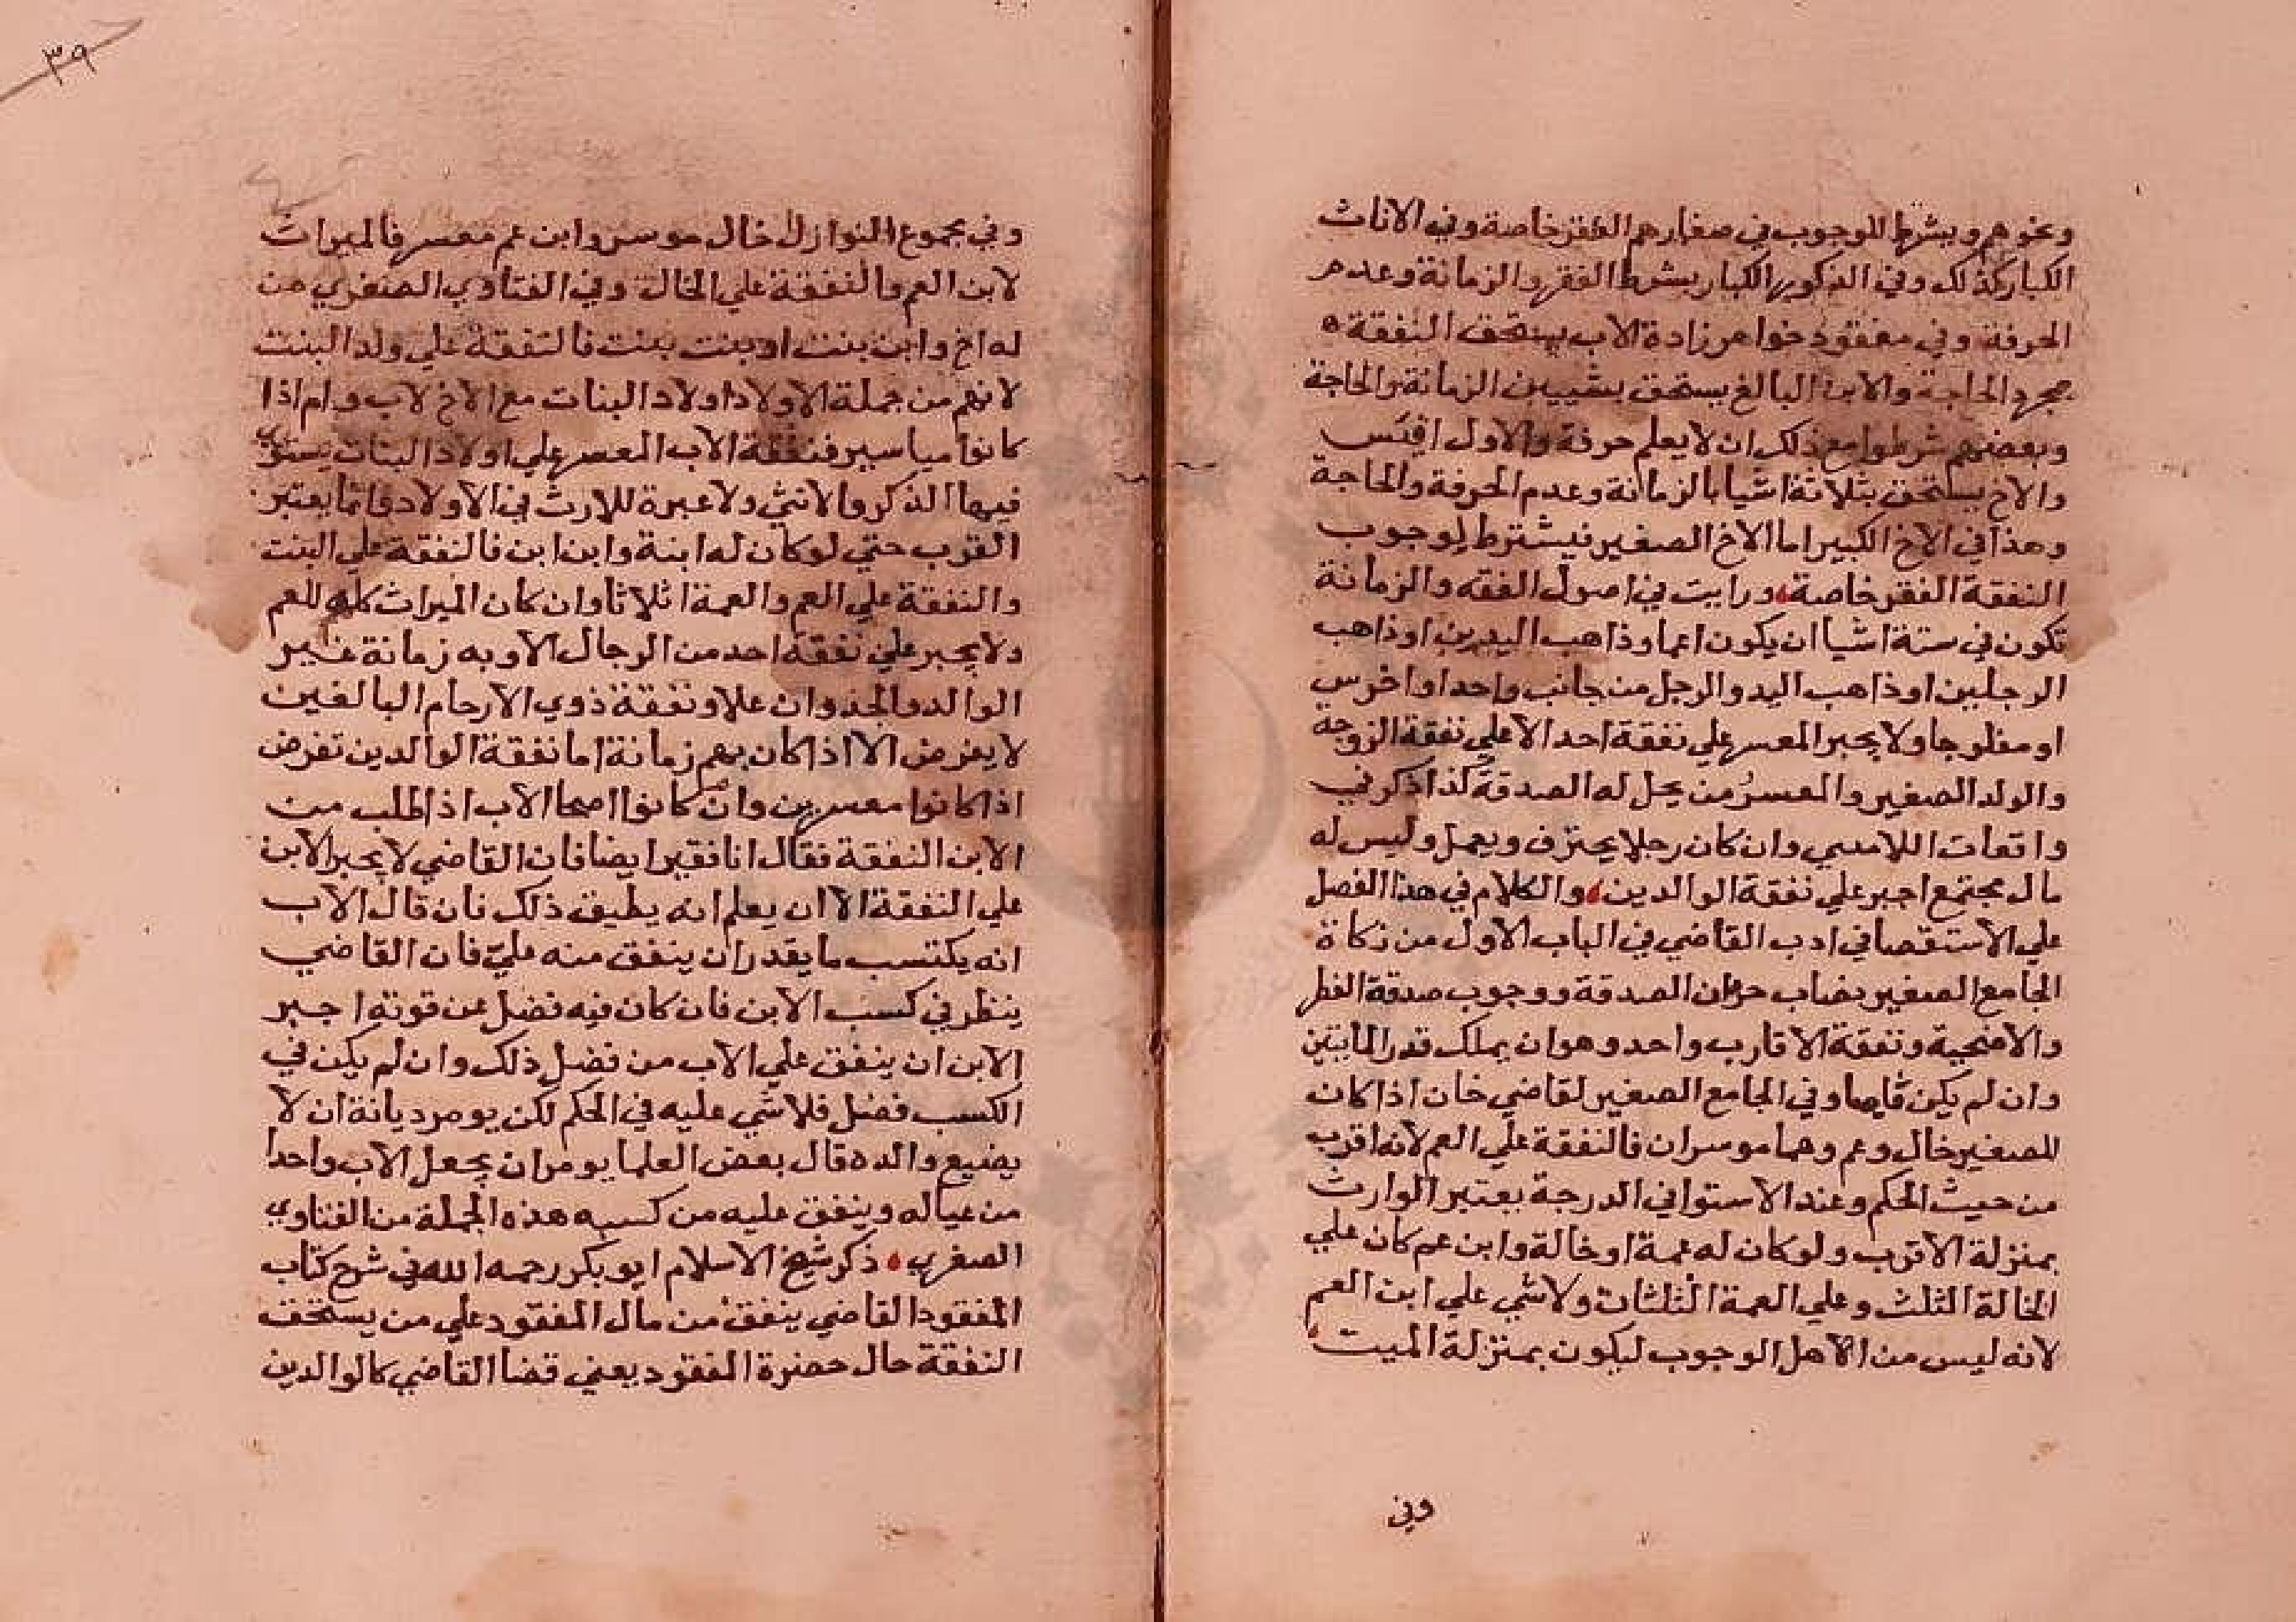 ونحوهم ويشترط للوجوب في صغارهم الفقر خاصة وفي الاناث
الكبار كذلك وفي الذكور الكبار يشترط الفقر والزمانة وعدم
الحرفة وفي مفقود خواهر زادة الاب يستحق النفقة
بمجرد الحاجة والابن البالغ يستحق بشيين الزمانة والحاجة
وبعضهم شرطوا مع ذلك ان لا يعلم حرفة والاول اقيس
والاخ يستحق بثلاثة اشيا بالزمانة وعدم الحرفة والحاجة
وهذا في الاخ الكبير اما الاخ الصغير فيشترط لوجوب
النفقة الفقر خاصة ورايت في اصول الفقه والزمانة
تكون في ستة اشيا ان يكون اعما وذاهب اليدين او ذاهب
الرجلين او ذاهب اليد والرجل من جانب واحد او اخرس
او مفلوجا ولا يجبر المعسر علي نفقة احد الا علي نفقة الزوجة
والولد الصغير والمعسر من يحل له الصدقة كذا ذكر في
واقعات اللامسي وان كان رجلا يحترف ويعمل وليس له
مال مجتمع اجبر علي نفقة الوالدين والكلام في هذا الفصل
علي الاستقصا في ادب القاضي في الباب الاول من زكاة
الجامع الصغير نصاب حرمان الصدقة ووجوب صدقة الفطر
والاضحية ونفقة الاقارب واحد وهو ان يملك قدر المايتين
وان لم يكن وفي الجامع الصغير لقاضي خان اذا كان
للصغير خال وعم وهما موسران فالنفقة علي العم لانه اقرب
من حيث الحكم وعند الاستوا في الدرجة يعتبر الوارث
بمنزلة الاقرب ولو كان له عمة او خالة وابن عم كان علي
الخالة الثلث وعلي العمة الثلثان ولا شي علي ابن العم
لانه ليس من الاهل الوجوب ليكون بمنزلة الميت
وفي
٣٩
وفي مجموع النوازل خال موسر وابن عم معسر فالميراث
لابن العم والنفقة علي الخال وفي الفتاوي الصغري من
له اخ وابن بنت او بنت بنت فالنفقة علي ولد البنت
لانهم من جملة الاولاد اولاد البنات مع الاخ لاب وام اذا
كانوا مياسير فنفقة الاب المعسر علي اولاد البنات يستوي
فيها الذكر والانثي ولا عبرة للارث في الاولاد وانما يعتبر
القرب حتي لو كان له ابنة وابن ابن فالنفقة علي البنت
والنفقة علي العم والعمة اثلاثا وان كان الميراث كله للعم
ولا يجبر علي نفقة احد من الرجال الا وبه زمانة غير
الوالد والجد وان علا ونفقة ذوي الارحام البالغين
لا يفرض الا اذا كان بهم زمانة اما نفقة الوالدين تفرض
اذا كانوا معسرين وان كانوا اصحا الاب اذا طلب من
الابن النفقة فقال انا فقير ايضا فان القاضي لا يجبر الابن
علي النفقة الا ان يعلم انه يطيق ذلك فان قال الاب
انه يكتسب ما يقدر ان ينفق منه علي فان القاضي
ينظر في كسب الابن فان كان فيه فضل عن قوته اجبر
الابن ان ينفق علي الاب من فضل ذلك وان لم يكن في
الكسب فضل فلا شي عليه في الحكم لكن يومر ديانة ان لا
يضيع والده قال بعض العلما يومر ان يجعل الاب واحدا
من عياله وينفق عليه من كسبه هذه الجملة من الفتاوي
الصغري ذكر شيخ الاسلام ابو بكر رحمه الله في شرح كتاب
المفقود القاضي ينفق من مال المفقود علي من يستحق
النفقة حال حضرة المفقود يعني قضا القاضي كالوالدين